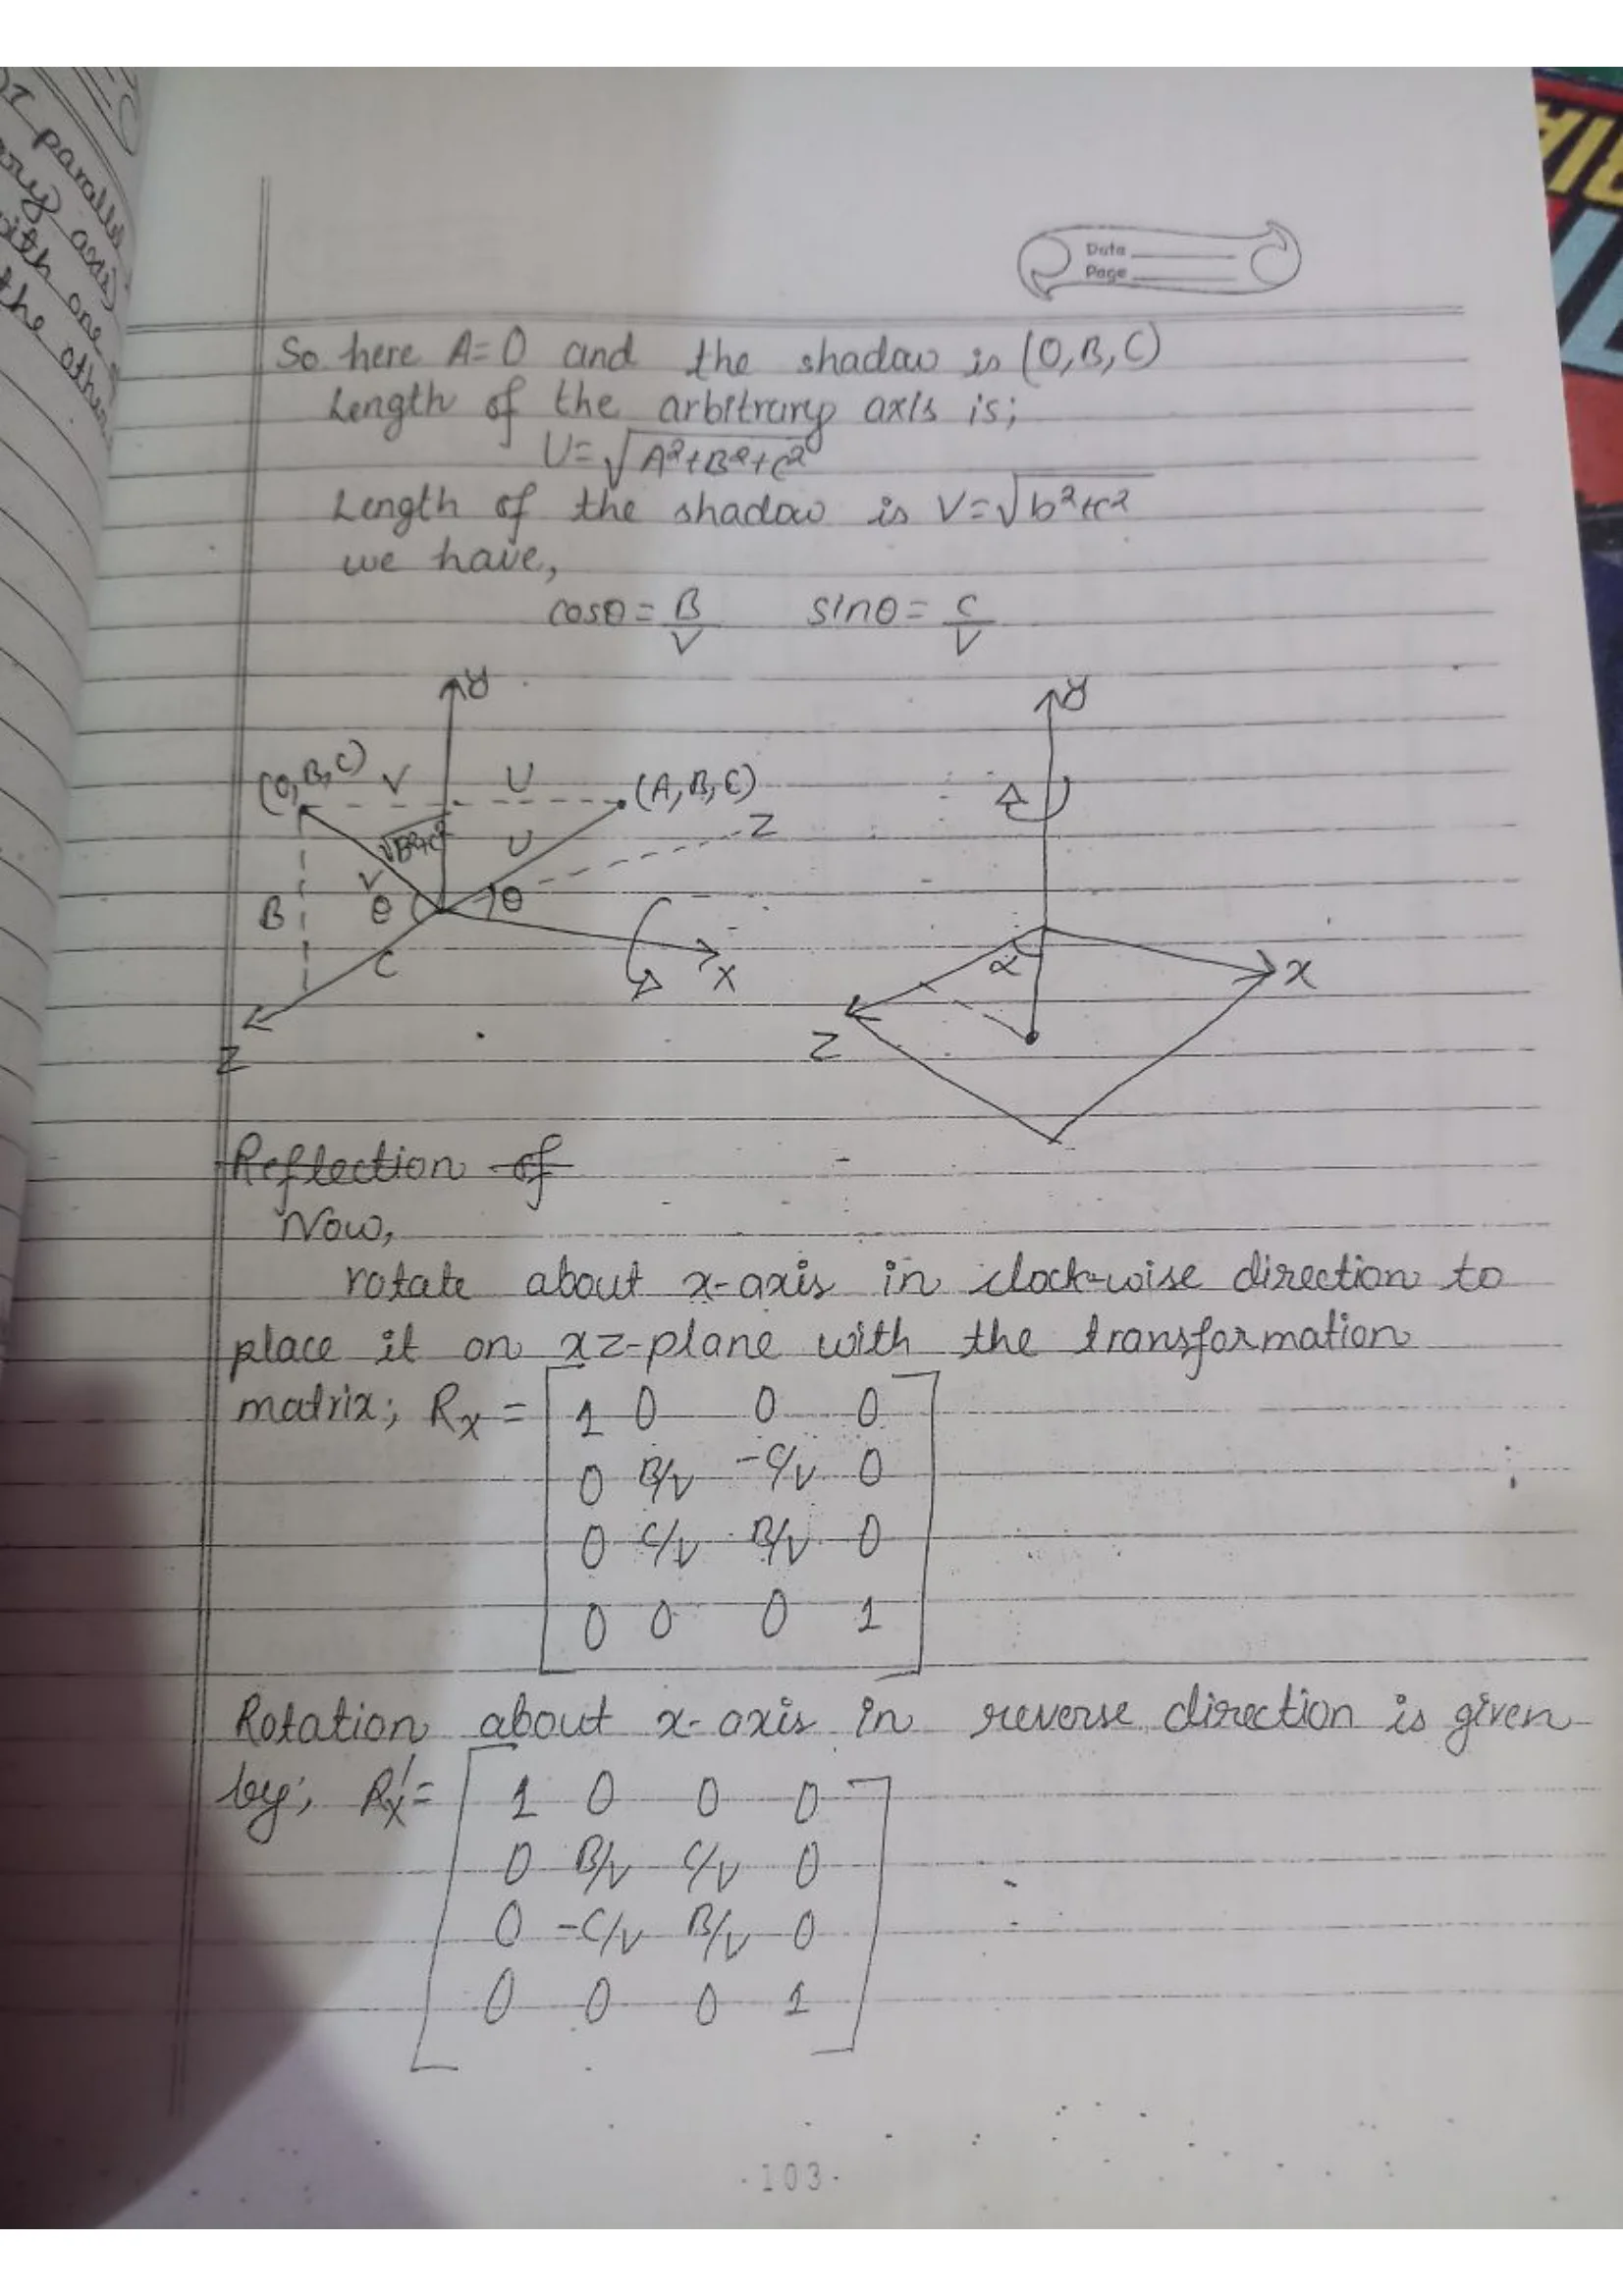 OT parallel
ary axis
with one
the other
Data
Page
So here A=0 and the shadow is (0,B,C)
Length of the arbitrary axis is;
U=√A²+B²+C²
Length of the shadow is V=√b²+c²
we have,
cosθ=B/V sinθ=C/V
y
y
(0,B,C) V U (A,B,C)
√B²+C² U Z
V
B θ θ
C X
α x
Z
Z
Reflection of
Now,
rotate about x-axis in clock-wise direction to
place it on xz-plane with the transformation
matrix; Rx = 1 0 0 0
0 B/V -C/V 0
0 C/V B/V 0
0 0 0 1
Rotation about x-axis in reverse direction is given
by; Rx'= 1 0 0 0
0 B/V C/V 0
0 -C/V B/V 0
0 0 0 1
-103-